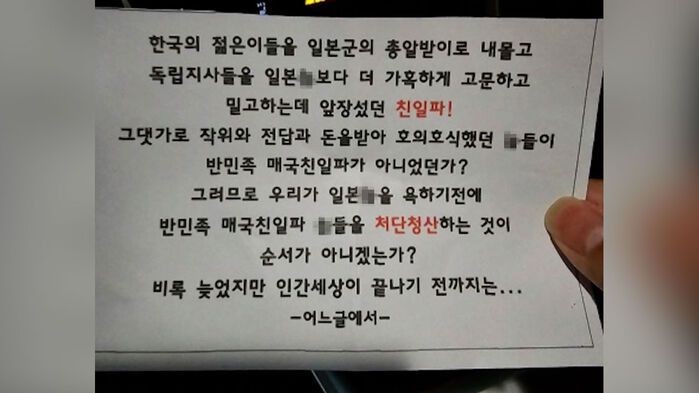 한국의 젊은이들을 일본군의 총알받이로 내몰고
독립지사들을 일본 보다 더 가혹하게 고문하고
밀고하는데 앞장섰던 친일파!
그댓가로 작위와 전답과 돈을받아 호의호식했던 들이
반민족 매국친일파가 아니었던가?
그러므로 우리가 일본 을 욕하기전에
반민족 매국친일파 들을 처단청산하는 것이
순서가 아니겠는가?
비록 늦었지만 인간세상이 끝나기 전까지는...
-어느글에서-